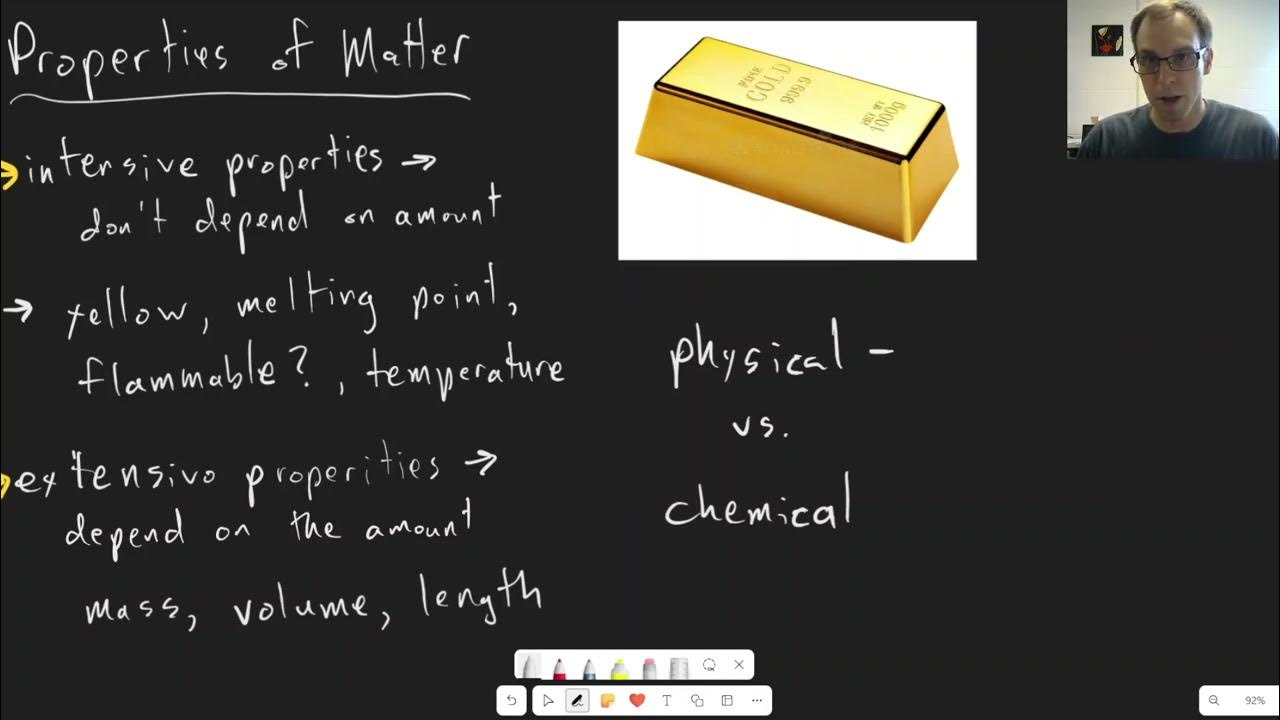 Properties of Matter
intensive properties →
don't depend on amount
→ yellow, melting point,
flammable?, temperature
extensivo properities →
depend on the amount
mass, volume, length
GOLD
999.9
NET WT
1000g
physical -
vs.
chemical
T
92%